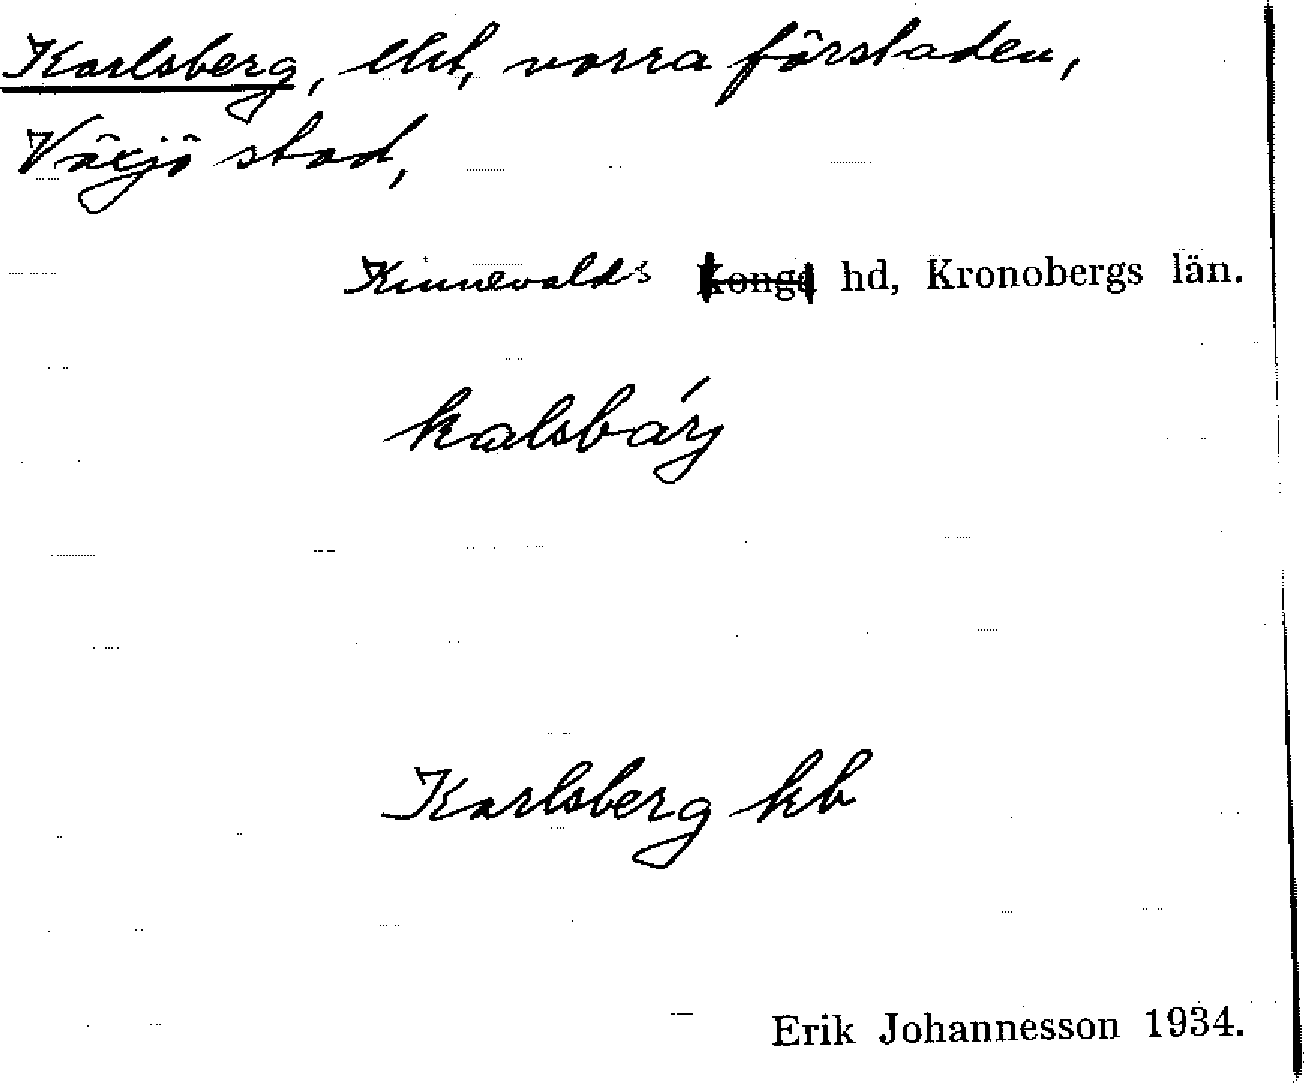 Karlsberg, lht, norra förstaden,
Växjö stad,
Kinnevalds Konga hd, Kronobergs län.
kalsbárj
Karlsberg kb
Erik Johannesson 1934.